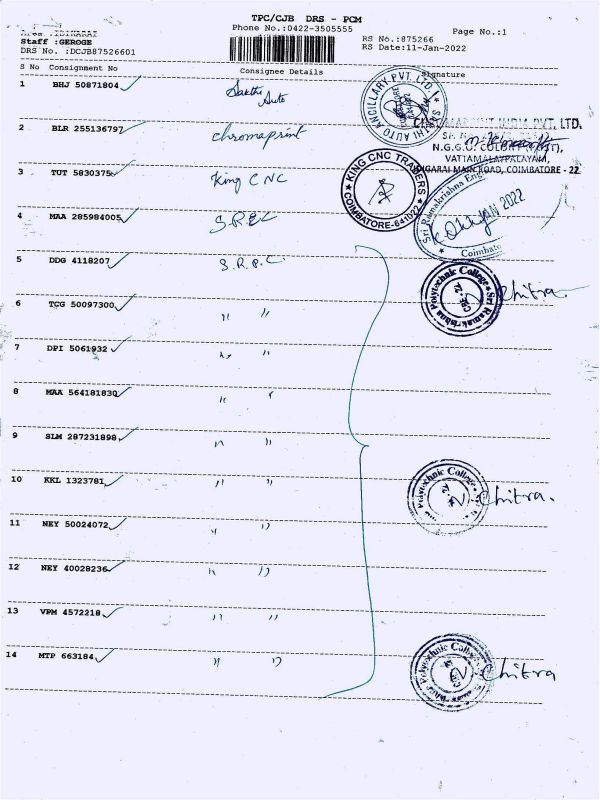 TPC/CJB DRS - PCM
Phone No.:0422-3505555
Page No.:1
Staff :GEROGE
RS No.:875266
DRS No. :DCJB87526601
RS Date:11-Jan-2022
S No Consignment No Consignee Details Signature
1 BHJ 50871804 Sakthi Auto
2 BLR 255136797 chromaprint
PVT. LTD.
N.G.G.O. COLONY (POST),
VATTAMALAYPALAYAM,
MAIN ROAD, COIMBATORE - 22
3 TUT 5830375 King CNC
KING CNC TRADERS
COIMBATORE-641022
4 MAA 285984005 S.R.E.C
Sri Ramakrishna Eng
JAN 2022
5 DDG 4118207 S.R.P.C.
Sri Ramakrishna Polytechnic College
Chitra
6 TCG 50097300 " "
7 DPI 5061932 " "
8 MAA 564181830 " "
9 SLM 287231898 " "
10 KKL 1323781 " "
Polytechnic College
N. Chitra.
11 NEY 50024072 " "
12 NEY 40028236 " "
13 VPM 4572218 " "
14 MTP 663184 " "
Polytechnic College
N. Chitra